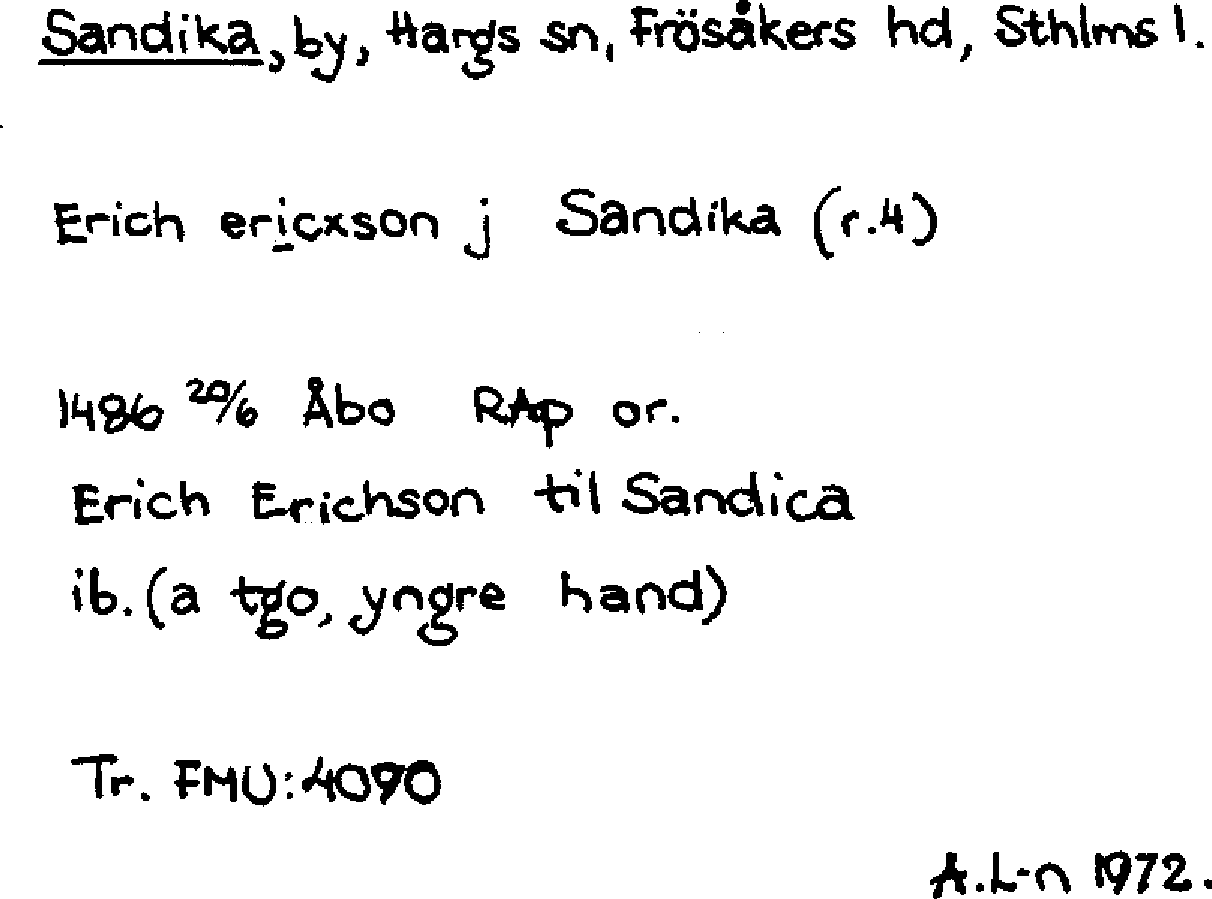 Sandika, by, Hargs sn, Frösåkers hd, Sthlms l.
Erich ericxson j Sandika (r.4)
1486 20/6 Åbo RAp or.
Erich Erichson til Sandica
ib. (a tgo, yngre hand)
Tr. FMU: 4090
A.L-n 1972.